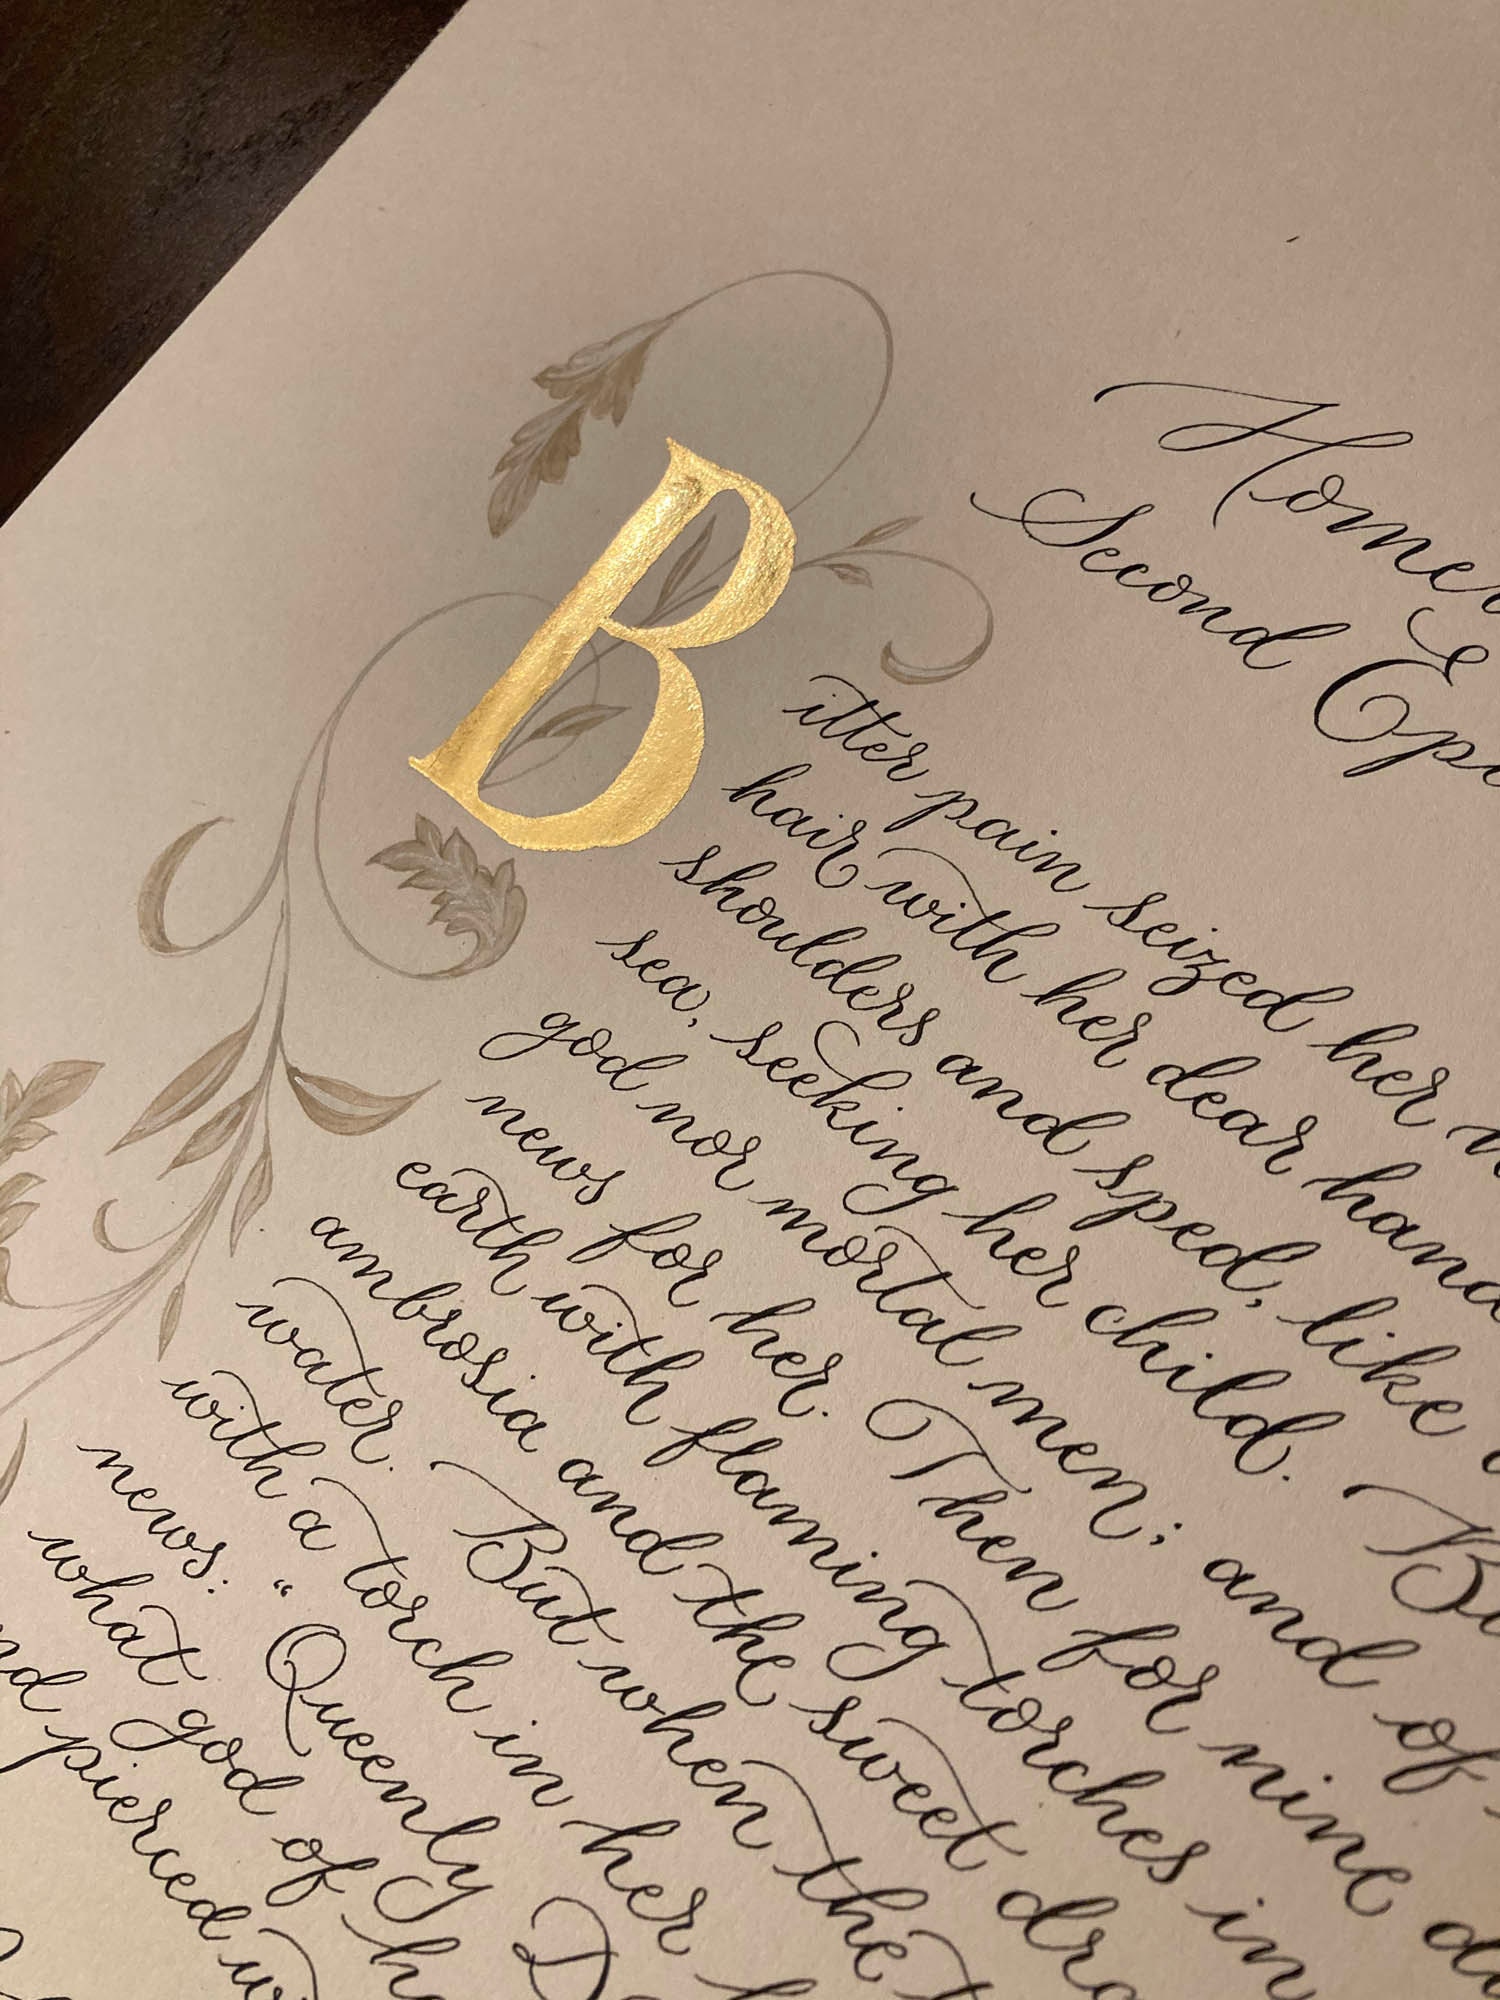 Homer
Second Ep
Bitter pain seized her
hair with her dear hand
shoulders and sped, like
sea, seeking her child. B
god nor mortal men; and of
news for her. Then for nine d
earth with flaming torches in
ambrosia and the sweet dra
water. But when the
with a torch in her
news: "Queenly D
what god of h
nd pierced wi